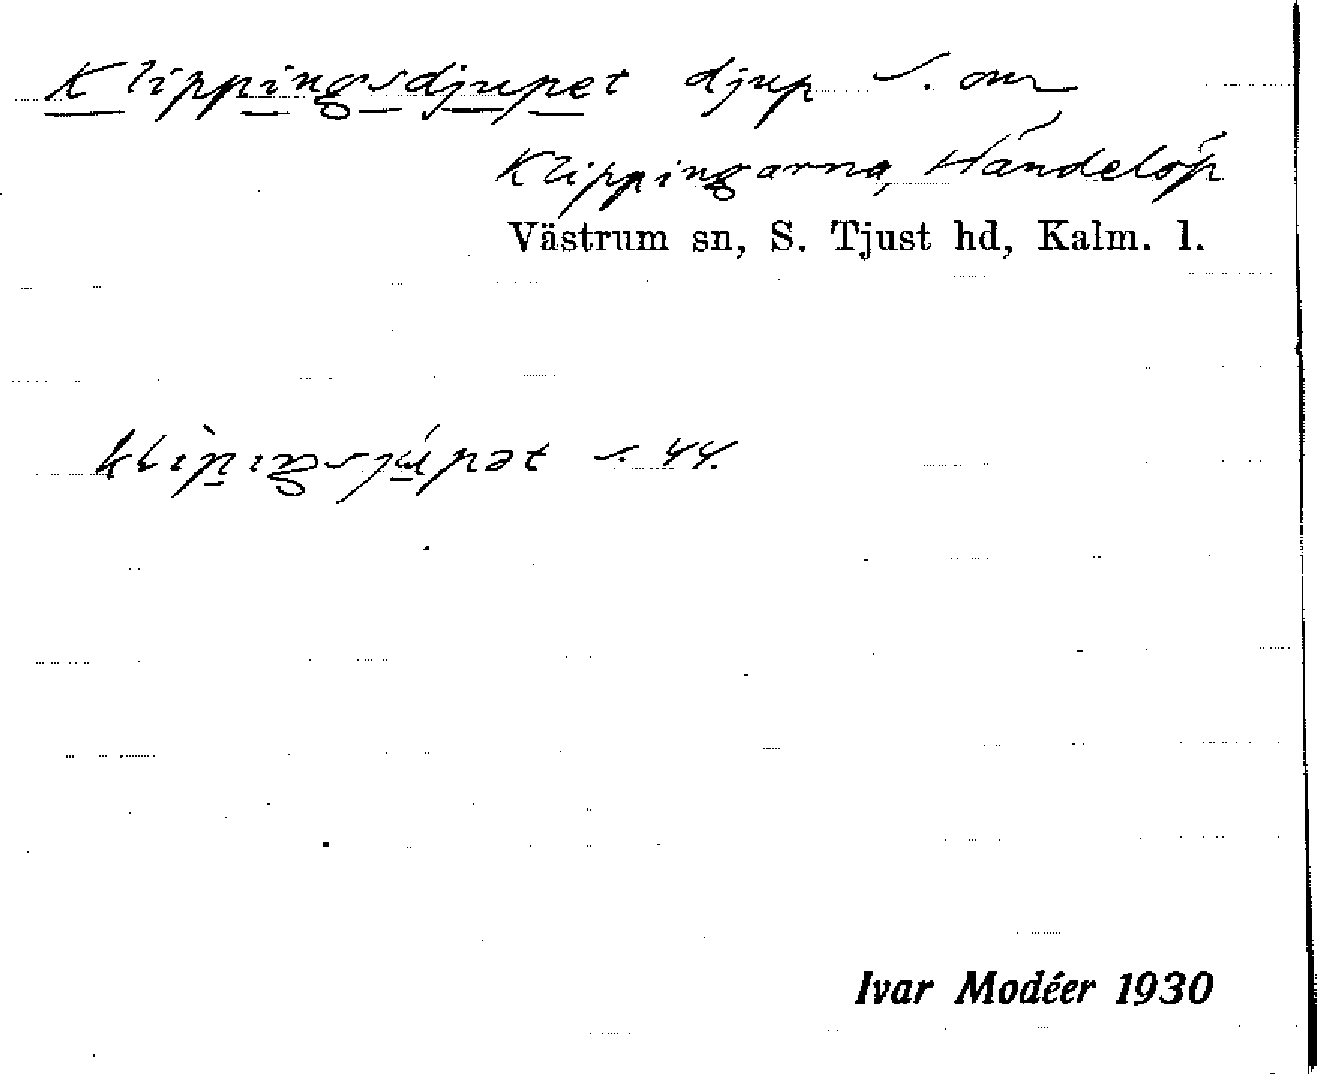 Klippingsdjupet djup S. om
Klippingarna, Händelöp
Västrum sn, S. Tjust hd, Kalm. l.
s. 44.
Ivar Modéer 1930